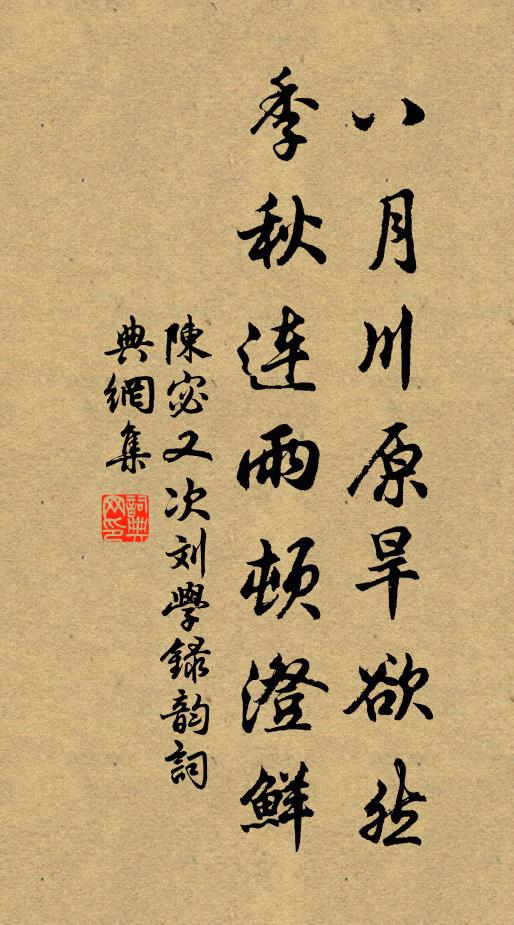 八月川原旱欲然
季秋連雨頓澄鮮
陳宓又次刘學録韵詞
典網集
詞典
网印